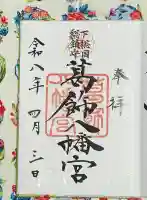 奉拝
下総国
総鎮守
葛飾八幡宮
令和八年四月三日